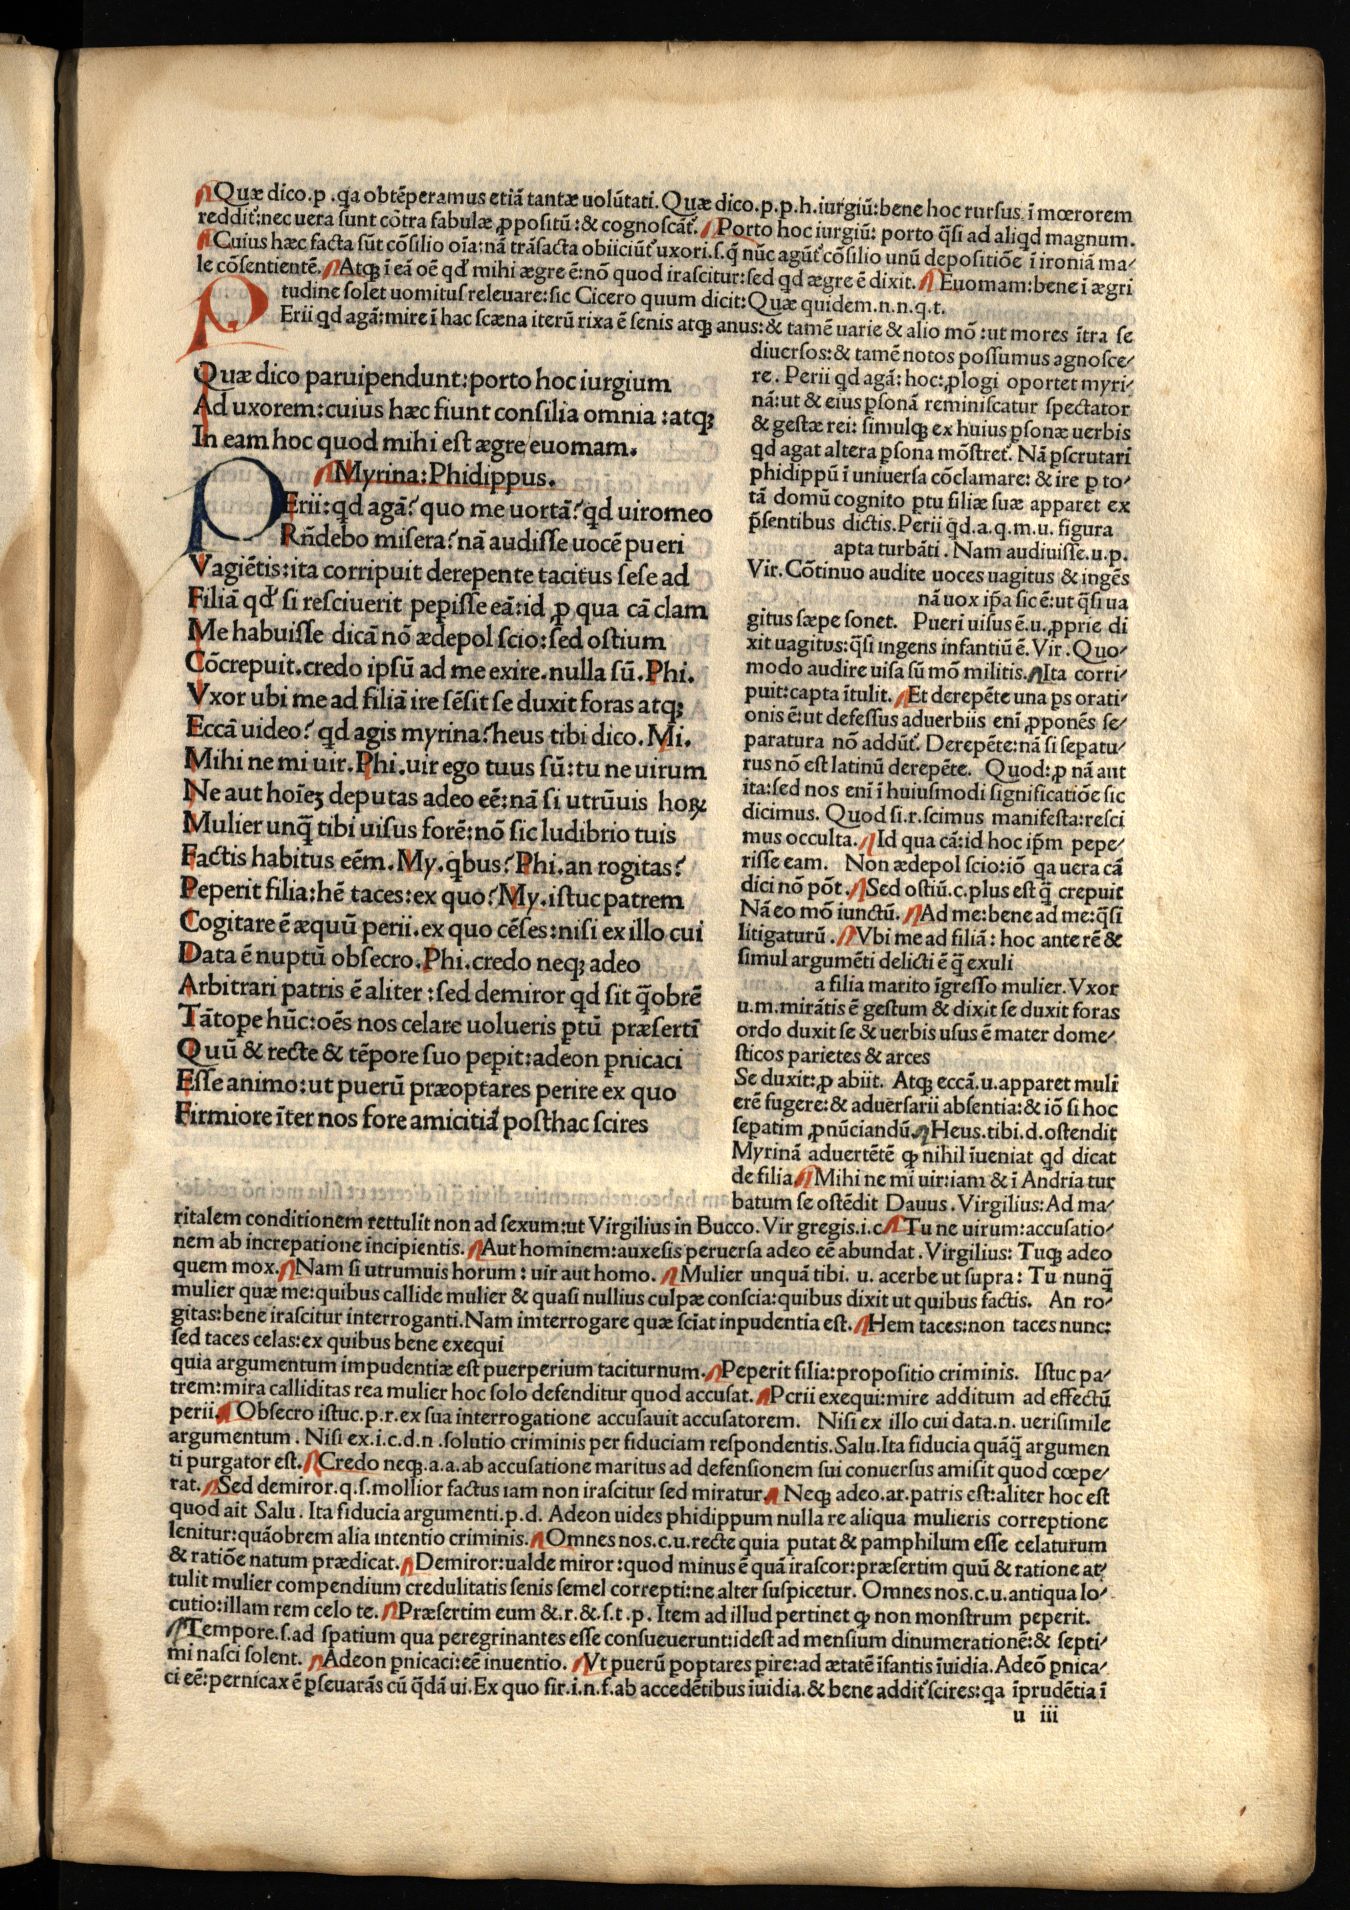 Quæ dico.p.qa obtẽperamus etiã tantæ uolũtati. Quæ dico.p.p.h.iurgiũ:bene hoc rursus ĩ mœrorem
reddit᷑:nec uera sunt cõtra fabulæ ꝓpositũ:& cognoscãt᷑. Porto hoc iurgiũ: porto q̃si ad aliqd magnum.
Cuius hæc facta sũt cõsilio oĩa:nã trãsacta obiiciũt᷑ uxori.s.q̃ nũc agũt᷑ cõsilio unũ depositiõe ĩ ironiã ma/
le cõsentientẽ. Atqꝫ ĩ eã oẽ qd᷑ mihi ægre ẽ:nõ quod irascitur:sed qd ægre ẽ dixit. Euomam:bene ĩ ægri
tudine solet uomitus releuare:sic Cicero quum dicit:Quæ quidem.n.n.q.t.
PErii qd agã:mire ĩ hac scæna iterũ rixa ẽ senis atqꝫ anus:& tamẽ uarie & alio mõ:ut mores ĩtra se
Quæ dico paruipendunt:porto hoc iurgium
Ad uxorem:cuius hæc fiunt consilia omnia:atqꝫ
In eam hoc quod mihi est ægre euomam.
Myrina:Phidippus.
PErii:qd agã? quo me uortã? qd uiro meo
Rñdebo misera? nã audisse uocẽ pueri
Vagiẽtis:ita corripuit derepente tacitus sese ad
Filiã qd᷑ si resciuerit pepisse eã:id ꝓ qua cã clam
Me habuisse dicã nõ ædepol scio:sed ostium
Cõcrepuit.credo ipsũ ad me exire.nulla sũ.Phi.
Vxor ubi me ad filiã ire sẽsit se duxit foras atqꝫ
Eccã uideo? qd agis myrina? heus tibi dico.Mi.
Mihi ne mi uir.Phi.uir ego tuus sũ:tu ne uirum
Ne aut hoĩeꝫ deputas adeo eẽ:nã si utrũuis hoꝝ
Mulier unq̃ tibi uisus forẽ:nõ sic ludibrio tuis
Factis habitus eẽm.My.qbus? Phi.an rogitas?
Peperit filia:hẽ taces:ex quo? My.istuc patrem
Cogitare ẽ æquũ perii.ex quo cẽses:nisi ex illo cui
Data ẽ nuptũ obsecro.Phi.credo neqꝫ adeo
Arbitrari patris ẽ aliter:sed demiror qd sit q̃obrẽ
Tãtope hũc:oẽs nos celare uolueris ꝑtũ præsertĩ
Quũ & recte & tẽpore suo peꝑit:adeon ꝑnicaci
Esse animo:ut puerũ præoptares perire ex quo
Firmiore ĩter nos fore amicitiã posthac scires
diuersos:& tamẽ notos possumus agnosce/
re. Perii qd agã:hoc:ꝓlogi oportet myri/
nã:ut & eius ꝑsonã reminiscatur spectator
& gestæ rei: simulqꝫ ex huius ꝑsonæ uerbis
qd agat altera ꝑsona mõstret᷑. Nã ꝑscrutari
phidippũ ĩ uniuersa cõclamare:& ire ꝑ to/
tã domũ cognito ꝑtu filiæ suæ apparet ex
p̃sentibus dictis.Perii q̃d.a.q.m.u. figura
apta turbãti. Nam audiuisse.u.p.
Vir.Cõtinuo audite uoces uagitus & ingẽs
nã uox ip̃a sic ẽ:ut q̃si ua
gitus sæpe sonet. Pueri uisus ẽ.u.ꝓprie di
xit uagitus:q̃si ingens infantiũ ẽ.Vir.Quo/
modo audire uisa sũ mõ militis. Ita corri/
puit:capta ĩtulit. Et derepẽte una ꝑs orati/
onis ẽ:ut defessus aduerbiis enĩ ꝓponẽs se/
paratura nõ addũt᷑. Derepẽte:nã si sepatu/
rus nõ est latinũ derepẽte. Quod:ꝓ nã aut
ita:sed nos enĩ ĩ huiusmodi significatiõe sic
dicimus. Quod si.r.scimus manifesta:resci
mus occulta. Id qua cã:id hoc ip̃m pepe/
risse eam. Non ædepol scio:iõ qa uera cã
dici nõ põt. Sed ostiũ.c.plus est q̃ crepuit
Nã eo mõ iunctũ. Ad me:bene ad me:q̃si
litigaturũ. Vbi me ad filiã: hoc ante rẽ &
simul argumẽti delicti ẽ q̃ exuli
a filia marito ĩgresso mulier.Vxor
u.m.mirãtis ẽ gestum & dixit se duxit foras
ordo duxit se & uerbis usus ẽ mater dome/
sticos parietes & arces
Se duxit:ꝓ abiit. Atqꝫ eccã.u.apparet muliĩ
erẽ fugere:& aduersarii absentia:& iõ si hoc
sepatim ꝓnũciandũ. Heus.tibi.d.ostendit
Myrinã aduertẽtẽ ꝙ nihil ĩueniat qd dicat
de filia. Mihi ne mi uir:iam & ĩ Andria tur
batum se ostẽdit Dauus. Virgilius:Ad ma/
ritalem conditionem rettulit non ad sexum:ut Virgilius in Bucco.Vir gregis.i.c. Tu ne uirum:accusatio/
nem ab increpatione incipientis. Aut hominem:auxesis peruersa adeo eẽ abundat.Virgilius: Tuqꝫ adeo
quem mox. Nam si utrumuis horum:uir aut homo. Mulier unquã tibi. u. acerbe ut supra: Tu nunq̃
mulier quæ me:quibus callide mulier & quasi nullius culpæ conscia:quibus dixit ut quibus factis. An ro/
gitas:bene irascitur interroganti.Nam imterrogare quæ sciat inpudentia est. Hem taces:non taces nunc:
sed taces celas:ex quibus bene exequi
quia argumentum impudentiæ est puerperium taciturnum. Peperit filia:propositio criminis. Istuc pa/
trem:mira calliditas rea mulier hoc solo defenditur quod accusat. Pcrii exequi:mire additum ad effectũ
perii. Obsecro istuc.p.r.ex sua interrogatione accusauit accusatorem. Nisi ex illo cui data.n. uerisimile
argumentum. Nisi ex.i.c.d.n.solutio criminis per fiduciam respondentis.Salu.Ita fiducia quãq̃ argumen
ti purgator est. Credo neqꝫ.a.a.ab accusatione maritus ad defensionem sui conuersus amisit quod cœpe/
rat. Sed demiror.q.s.mollior factus iam non irascitur sed miratur. Neqꝫ adeo.ar.patris est:aliter hoc est
quod ait Salu. Ita fiducia argumenti.p.d. Adeon uides phidippum nulla re aliqua mulieris correptione
lenitur:quãobrem alia intentio criminis. Omnes nos.c.u.recte quia putat & pamphilum esse celaturum
& ratiõe natum prædicat. Demiror:ualde miror:quod minus ẽ quã irascor:præsertim quũ & ratione at/
tulit mulier compendium credulitatis senis semel correpti:ne alter suspicetur. Omnes nos.c.u.antiqua lo/
cutio:illam rem celo te. Præsertim eum &.r.&.s.t.p. Item ad illud pertinet ꝙ non monstrum peperit.
Tempore.s.ad spatium qua peregrinantes esse consueuerunt:idest ad mensium dinumerationẽ:& septi/
mi nasci solent. Adeon ꝑnicaci:eẽ inuentio. Vt puerũ p̃optares ꝑire:ad ætatẽ ĩfantis ĩuidia.Adeõ ꝑnica/
ci eẽ:pernicax ẽ ꝑseuarãs cũ q̃dã ui.Ex quo fir.i.n.f.ab accedẽtibus ĩuidia.& bene addit᷑ scires:qa ĩprudẽtia ĩ
u iii